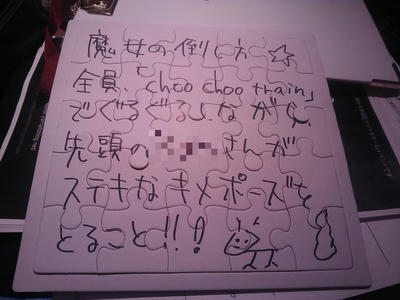 魔女の倒し方☆
全員、「choo choo train」
でぐるぐるしながら、
先頭の さんが
ステキなキメポーズを
とること!!!